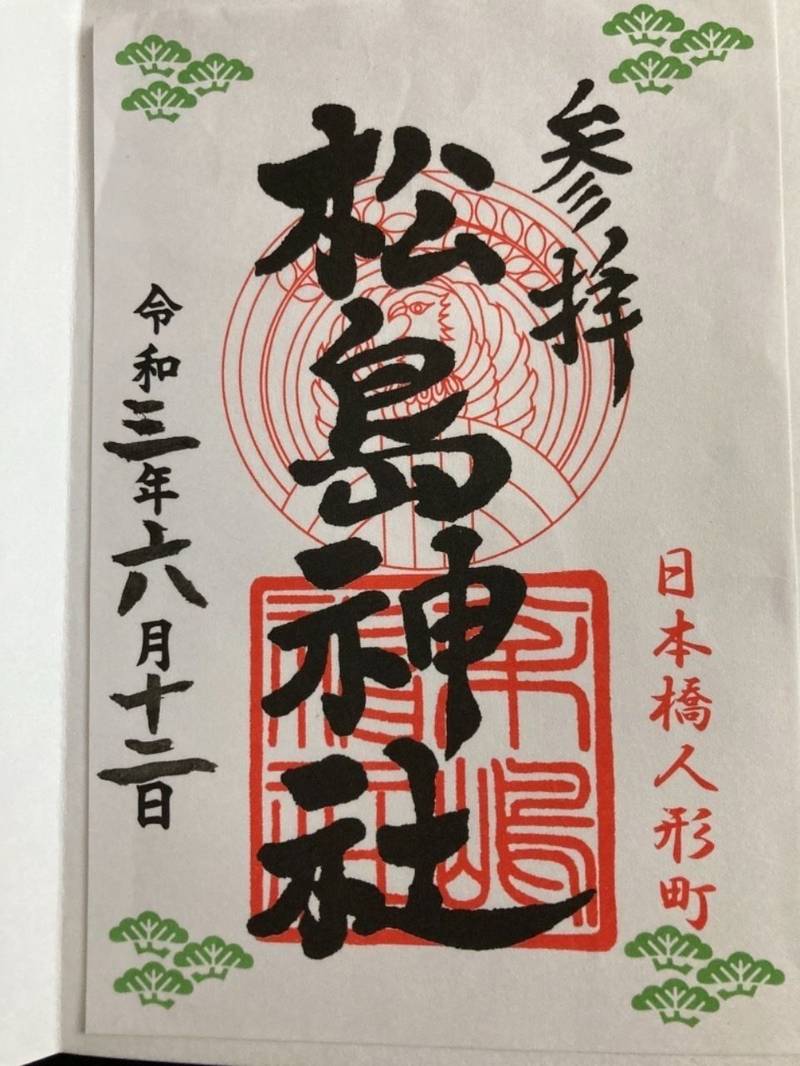 参拝
日本橋人形町
松島神社
令和三年六月十二日